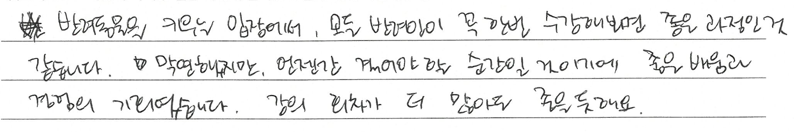 반려동물을 키우는 입장에서, 모든 반려인이 꼭 한번 수강해보면 좋을 과정인것
같습니다. 막연해지만, 언젠간 겪어야 할 순간일 것이기에 좋은 배움과
경험의 기회였습니다. 강의 회차가 더 많아도 좋을듯해요.